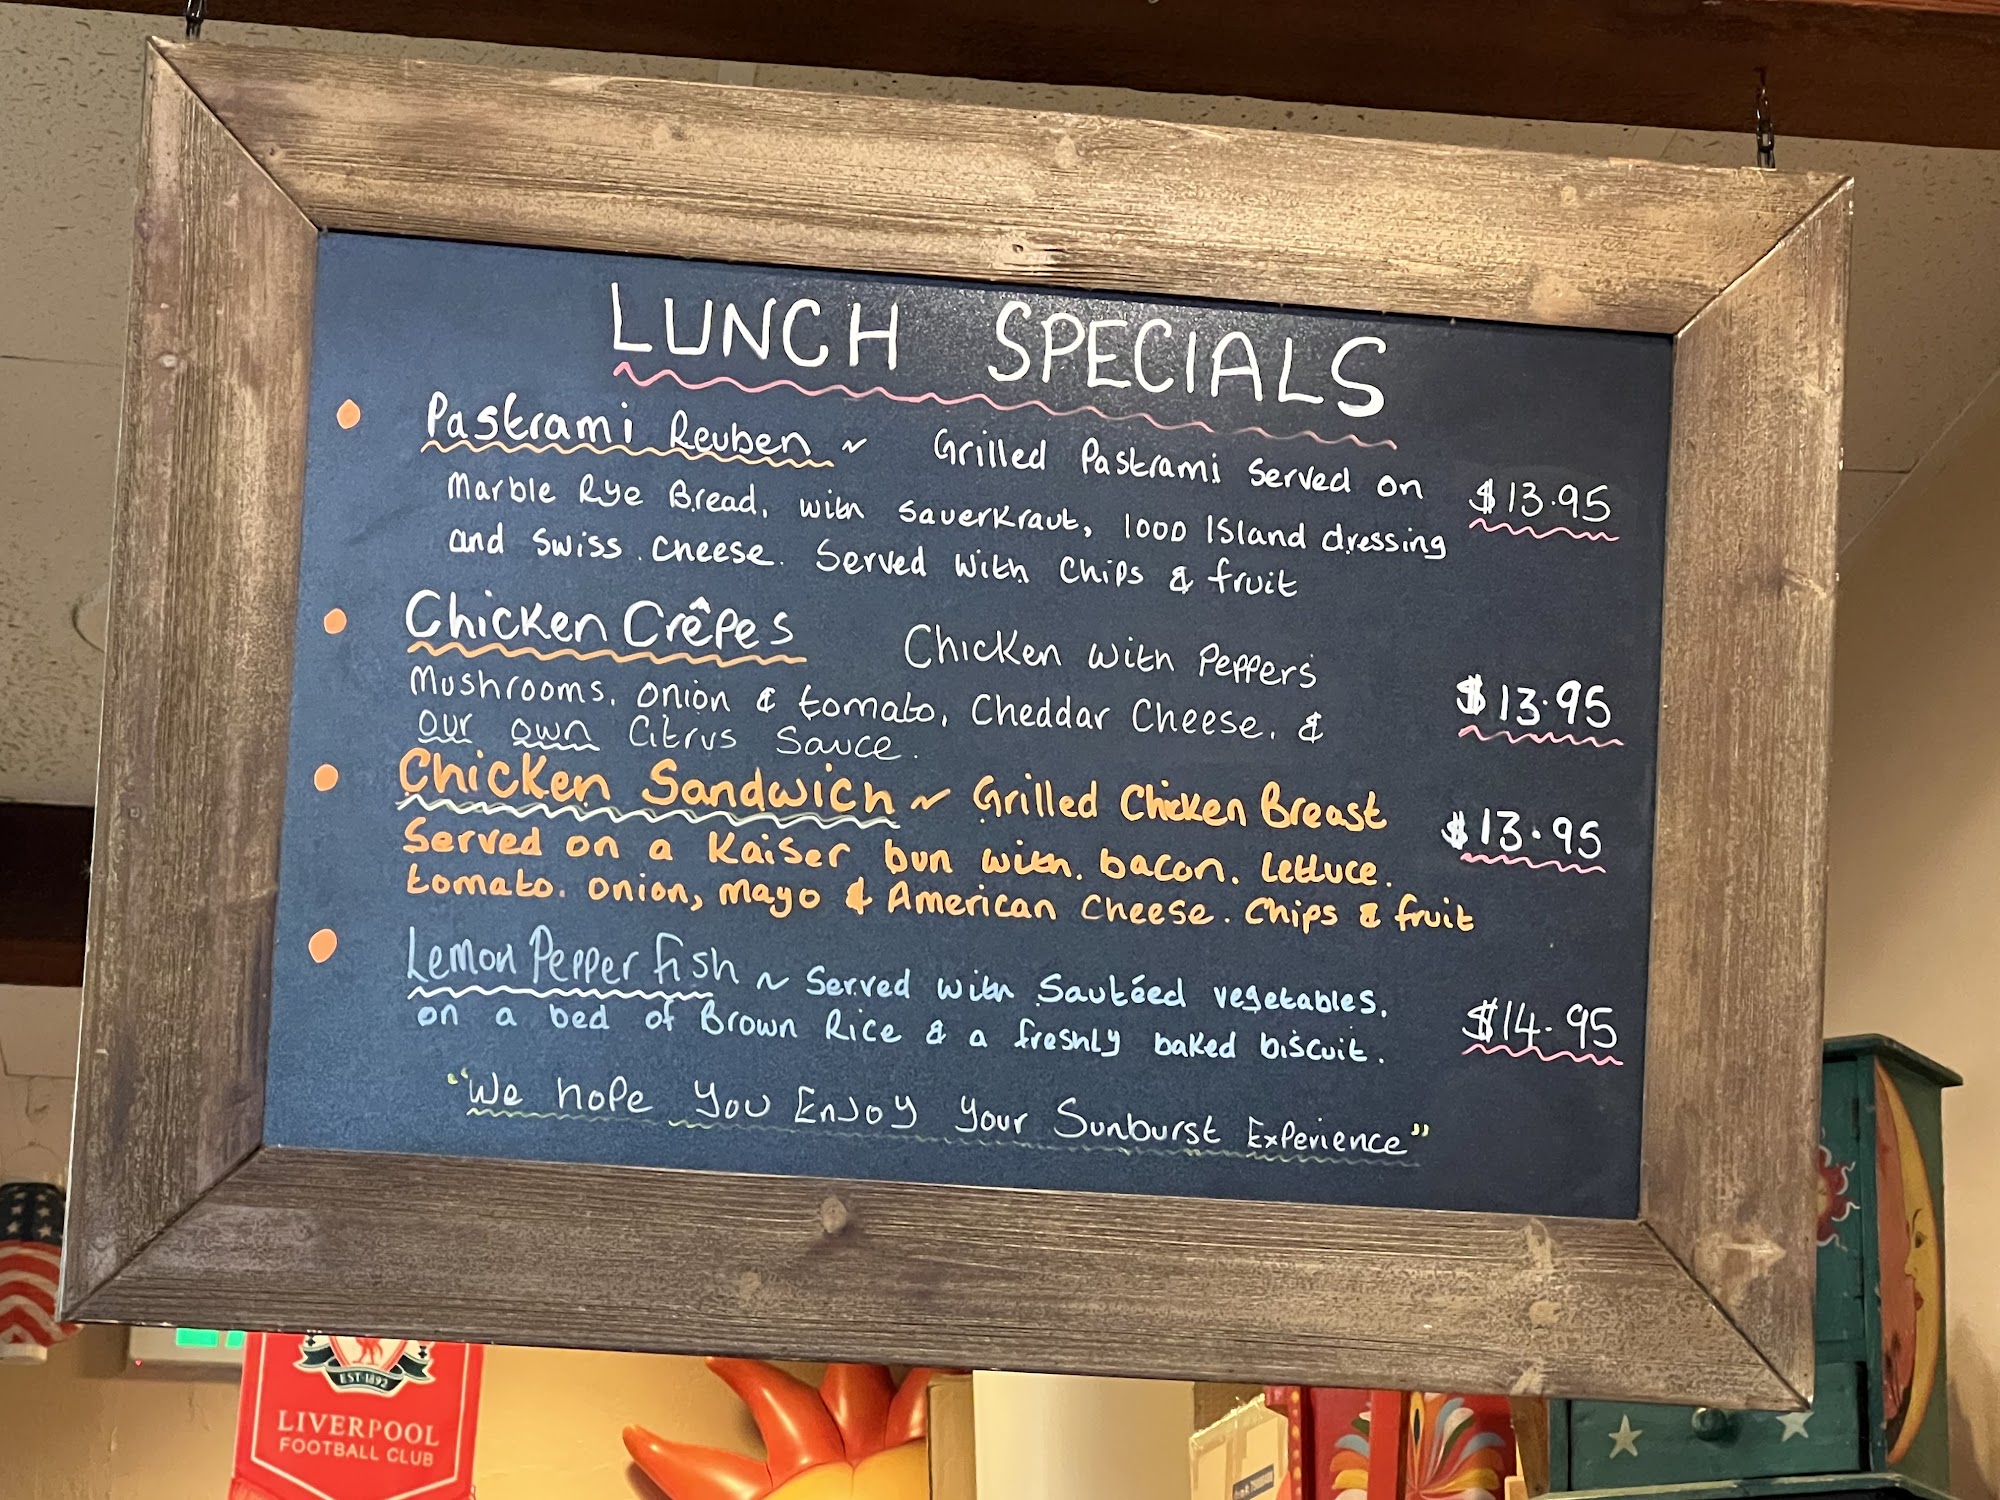 LUNCH SPECIALS
Pastrami Reuben ~ Grilled Pastrami Served on
Marble Rye Bread, with Sauerkraut, 1000 Island dressing
and Swiss Cheese. Served with Chips & fruit
$13.95
Chicken Crêpes Chicken with Peppers
Mushrooms, onion & tomato, Cheddar Cheese, &
our own Citrus Sauce.
$13.95
Chicken Sandwich ~ Grilled Chicken Breast
Served on a Kaiser bun with bacon, lettuce,
tomato, onion, mayo & American Cheese. Chips & fruit
$13.95
Lemon Pepper fish ~ Served with Sautéed vegetables,
on a bed of Brown Rice & a freshly baked biscuit.
$14.95
"We hope you Enjoy your Sunburst Experience"
EST·1892
LIVERPOOL
FOOTBALL CLUB